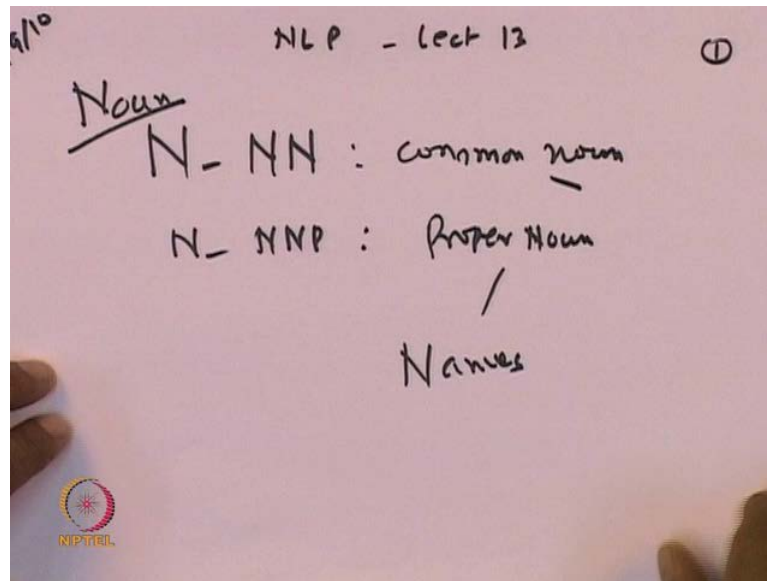 NLP - Lect 13
①
Noun
N- NN : common noun
N- NNP : Proper Noun
Names
NPTEL